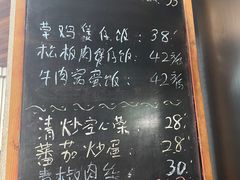 草鸡煲仔饭：38.
松板肉煲仔饭：42元
牛肉窝蛋饭：42元
清炒空心菜：28.
蕃茄炒蛋：28.
青椒肉丝 30.